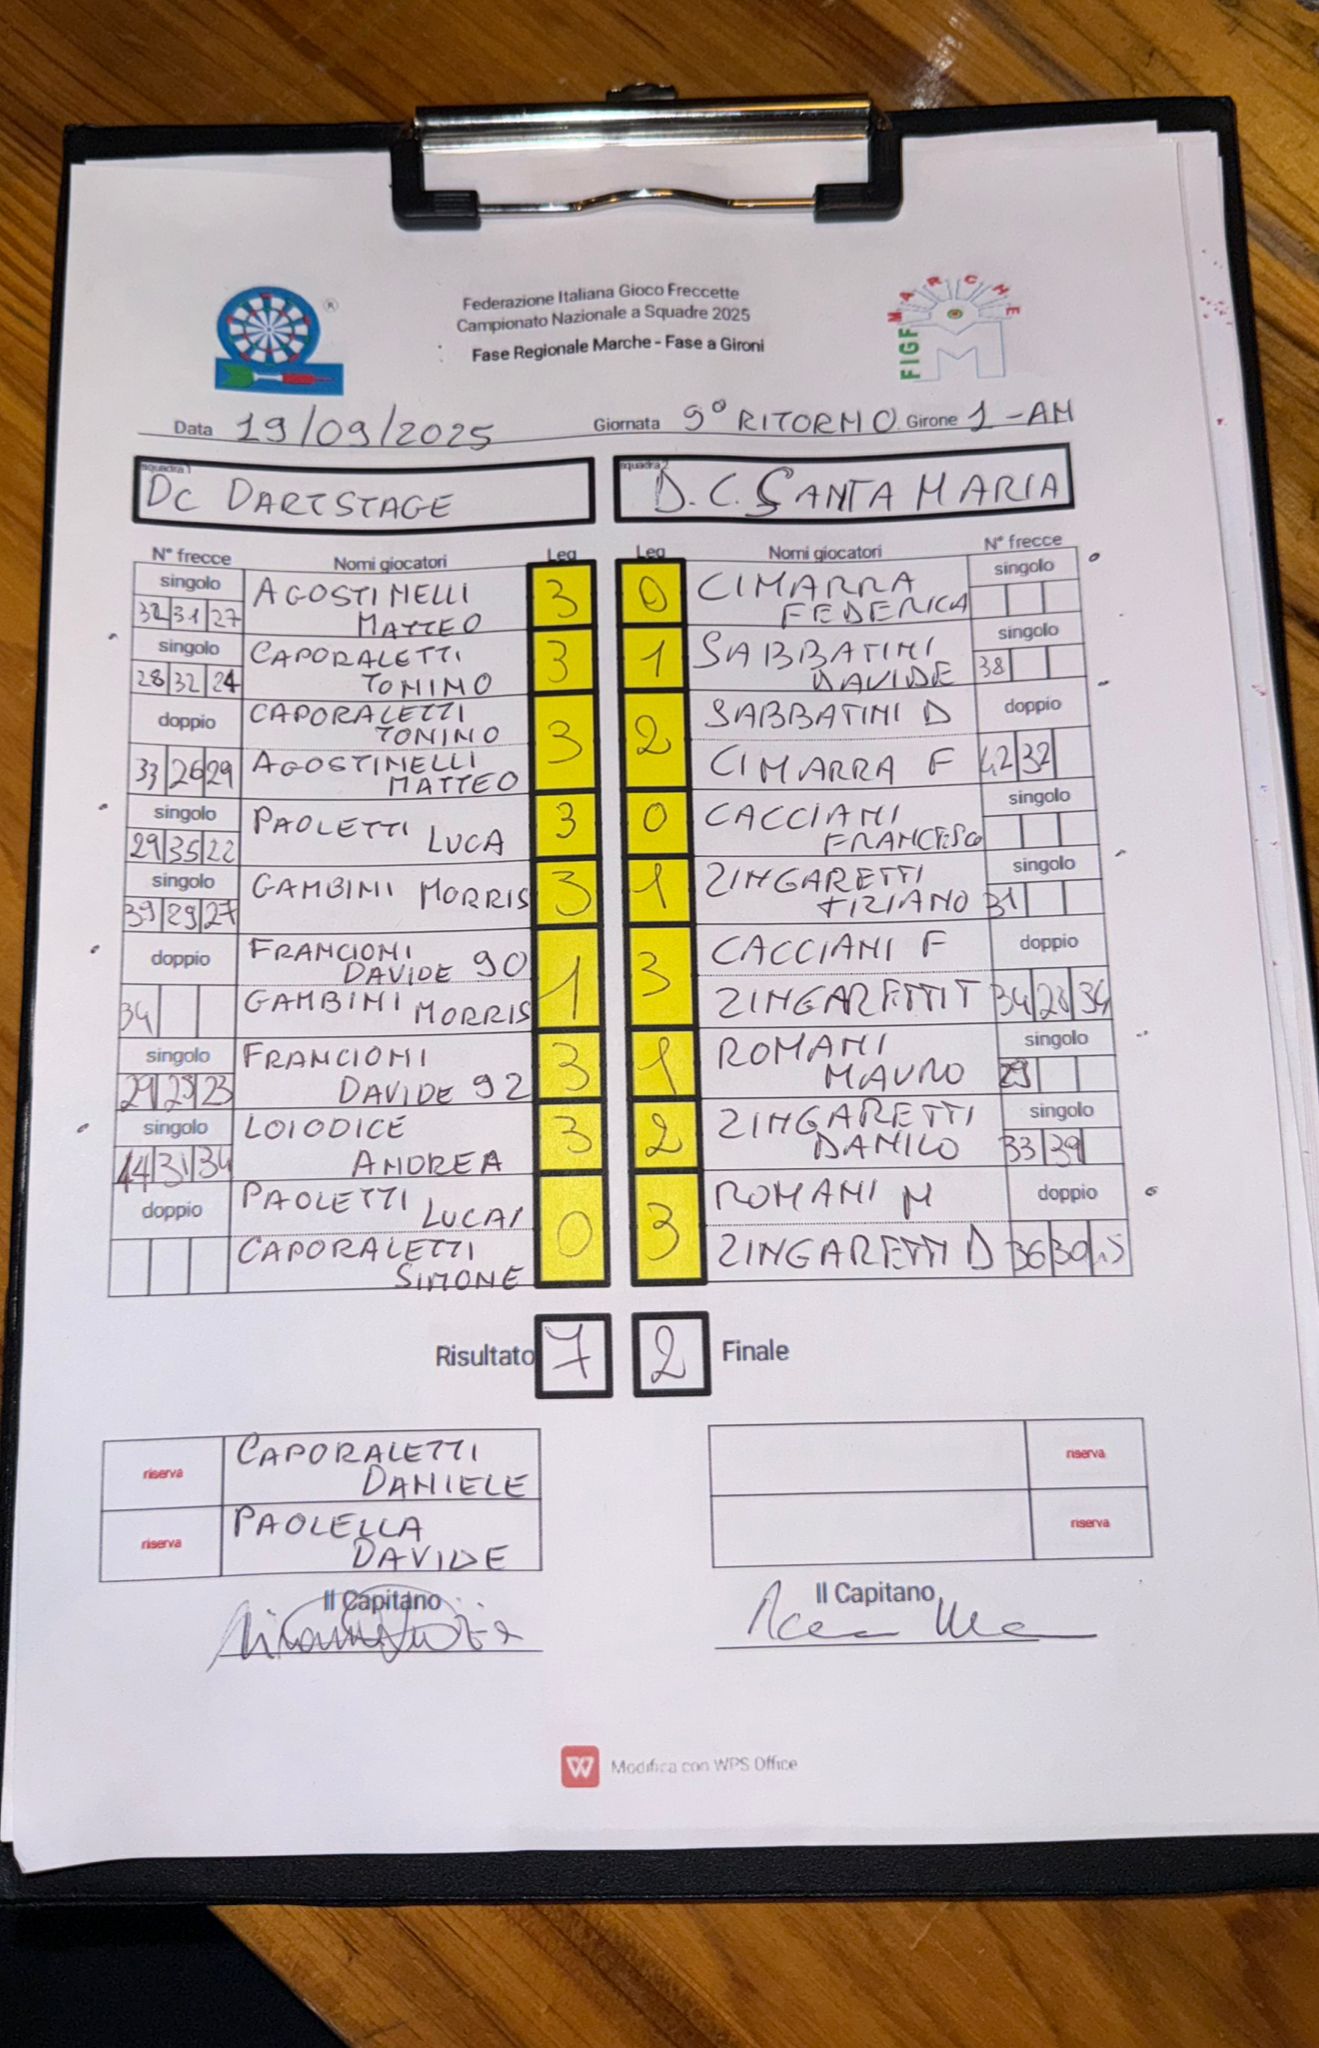 Federazione Italiana Gioco Freccette
Campionato Nazionale a Squadre 2025
Fase Regionale Marche - Fase a Gironi
®
MARCHE
FIGF
Data 19/09/2025 Giornata 9° RITORNO Girone 1 - AN
squadra 1 squadra 2
DC DARTSTAGE D.C. SANTA MARIA
N° frecce Nomi giocatori Leg Leg Nomi giocatori N° frecce
singolo AGOSTINELLI 3 0 CIMARRA singolo
32 31 27 MATTEO FEDERICA
singolo CAPORALETTI 3 1 SABBATINI singolo
28 32 24 TONINO DAVIDE 38
doppio CAPORALETTI TONINO 3 2 SABBATINI D doppio
33 26 29 AGOSTINELLI MATTEO CIMARRA F 42 32
singolo PAOLETTI LUCA 3 0 CACCIANI singolo
29 35 22 FRANCESCO
singolo GAMBINI MORRIS 3 1 ZINGARETTI singolo
39 29 27 TIZIANO 31
doppio FRANCIONI DAVIDE 90 1 3 CACCIANI F doppio
34 GAMBINI MORRIS ZINGARETTI T 34 28 34
singolo FRANCIONI 3 1 ROMANI singolo
29 29 23 DAVIDE 92 MAURO 29
singolo LOIODICE 3 2 ZINGARETTI singolo
44 31 34 ANDREA DANILO 33 39
doppio PAOLETTI 0 3 ROMANI M doppio
CAPORALETTI SIMONE ZINGARETTI D 36 30
Risultato 7 2 Finale
riserva CAPORALETTI DANIELE riserva
riserva PAOLELLA DAVIDE riserva
Il Capitano Il Capitano
W Modifica con WPS Office